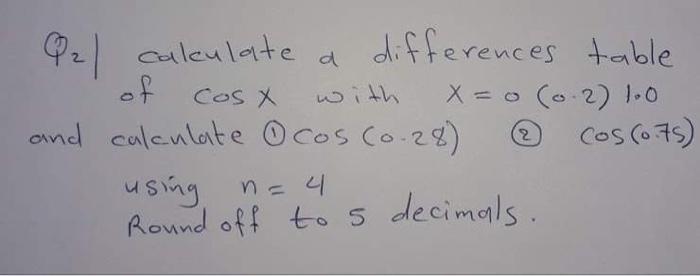 Q2| calculate a differences table
of cos x with x = 0 (0.2) 1.0
and calculate ① cos (0.28) ② cos (0.75)
using n = 4
Round off to 5 decimals.